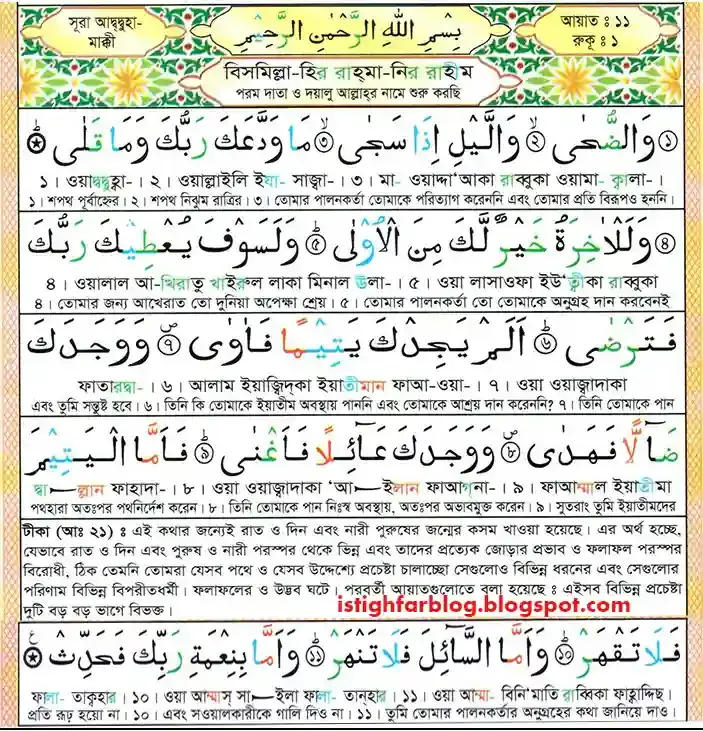 সূরা আদ্বদ্বুহা-
মাক্কী
بِسْمِ اللّٰهِ الرَّحْمٰنِ الرَّحِيْمِ
আয়াত : ১১
রুকূ : ১
বিসমিল্লা-হির রাহ্মা-নির রাহীম
পরম দাতা ও দয়ালু আল্লাহ্‌র নামে শুরু করছি
① وَالضُّحٰى ② وَالَّيْلِ اِذَا سَجٰى ③ مَا وَدَّعَكَ رَبُّكَ وَمَا قَلٰى
১। ওয়াদ্বদ্বুহ্বা-। ২। ওয়াল্লাইলি ইযা- সাজ্বা-। ৩। মা- ওয়াদ্দা‘আকা রাব্বুকা ওয়ামা- ক্বালা-।
১। শপথ পূর্বাহ্নের। ২। শপথ নিঝুম রাত্রির। ৩। তোমার পালনকর্তা তোমাকে পরিত্যাগ করেননি এবং তোমার প্রতি বিরূপও হননি।
④ وَلَلْاٰخِرَةُ خَيْرٌ لَّكَ مِنَ الْاُوْلٰى ⑤ وَلَسَوْفَ يُعْطِيْكَ رَبُّكَ
৪। ওয়ালাল আ-খিরাতু খাইরুল লাকা মিনাল উলা-। ৫। ওয়া লাসাওফা ইউ‘ত্বীকা রাব্বুকা
৪। তোমার জন্য আখেরাত তো দুনিয়া অপেক্ষা শ্রেয়। ৫। তোমার পালনকর্তা তো তোমাকে অনুগ্রহ দান করবেনই
فَتَرْضٰى ⑥ اَلَمْ يَجِدْكَ يَتِيْمًا فَاٰوٰى ⑦ وَوَجَدَكَ
ফাতারদ্বা-। ৬। আলাম ইয়াজ্বিদ্‌কা ইয়াতীমান ফাআ-ওয়া-। ৭। ওয়া ওয়াজ্বাদাকা
এবং তুমি সন্তুষ্ট হবে। ৬। তিনি কি তোমাকে ইয়াতীম অবস্থায় পাননি এবং তোমাকে আশ্রয় দান করেননি? ৭। তিনি তোমাকে পান
ضَآلًّا فَهَدٰى ⑧ وَوَجَدَكَ عَآئِلًا فَاَغْنٰى ⑨ فَاَمَّا الْيَتِيْمَ
দ্বা—ল্লান ফাহাদা-। ৮। ওয়া ওয়াজ্বাদাকা ‘আ—ইলান ফাআগ্‌না-। ৯। ফাআম্মাল ইয়াতীমা
পথহারা অতঃপর পথনির্দেশ করেন। ৮। তিনি তোমাকে পান নিঃস্ব অবস্থায়, অতঃপর অভাবমুক্ত করেন। ৯। সুতরাং তুমি ইয়াতীমদের
টীকা (আঃ ২১) : এই কথার জন্যেই রাত ও দিন এবং নারী পুরুষের জন্মের কসম খাওয়া হয়েছে। এর অর্থ হচ্ছে,
যেভাবে রাত ও দিন এবং পুরুষ ও নারী পরস্পর থেকে ভিন্ন এবং তাদের প্রত্যেক জোড়ার প্রভাব ও ফলাফল পরস্পর
বিরোধী, ঠিক তেমনি তোমরা যেসব পথে ও যেসব উদ্দেশ্যে প্রচেষ্টা চালাচ্ছো সেগুলোও বিভিন্ন ধরনের এবং সেগুলোর
পরিণাম বিভিন্ন বিপরীতধর্মী। ফলাফলের ও উদ্ভব ঘটে। পরবর্তী আয়াতগুলোতে বলা হয়েছে : এইসব বিভিন্ন প্রচেষ্টা
দুটি বড় বড় ভাগে বিভক্ত।
istighfarblog.blogspot.com
فَلَا تَقْهَرْ ⑩ وَاَمَّا السَّآئِلَ فَلَا تَنْهَرْ ⑪ وَاَمَّا بِنِعْمَةِ رَبِّكَ فَحَدِّثْ
ফালা- তাক্বহার। ১০। ওয়া আম্মাস্ সা—ইলা ফালা- তান্‌হার। ১১। ওয়া আম্মা- বিনি‘মাতি রাব্বিকা ফাহ্বাদ্দিছ্।
প্রতি রূঢ় হয়ো না। ১০। এবং সওয়ালকারীকে গালি দিও না। ১১। তুমি তোমার পালনকর্তার অনুগ্রহের কথা জানিয়ে দাও।